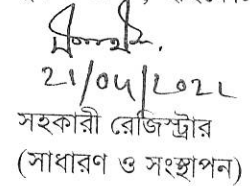 21/04/2022
সহকারী রেজিস্ট্রার
(সাধারণ ও সংস্থাপন)